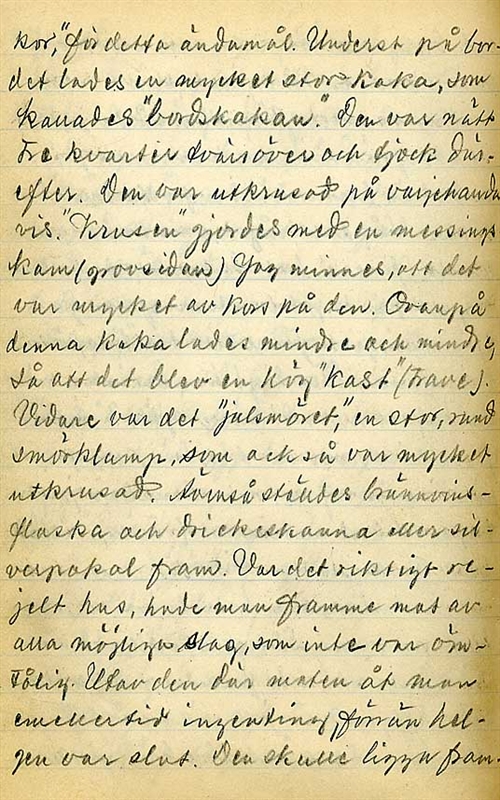 kor," för detta ändamål. Underst på bor-
det lades en mycket stor kaka, som
kallades "bordskakan." Den var nätt
tre kvarter tvärsöver och tjock där-
efter. Den var utkrusad på varjehanda
vis. "Krusen" gjordes med en messings
kam (grovsidan) Jag minnes, att det
var mycket av kors på den. Ovanpå
denna kaka lades mindre och mindre,
så att det blev en hög "kast" (trave).
Vidare var det "julsmöret," en stor, rund
smörklump, som också var mycket
utkrusad. Ävenså ställdes brännvins-
flaska och drickeskanna eller sil-
verpokal fram. Var det riktigt re-
jelt hus, hade man framme mat av
alla möjliga slag, som inte var öm-
tålig. Utav den där maten åt man
emellertid ingenting, förrän hel-
gen var slut. Den skulle ligga fram-